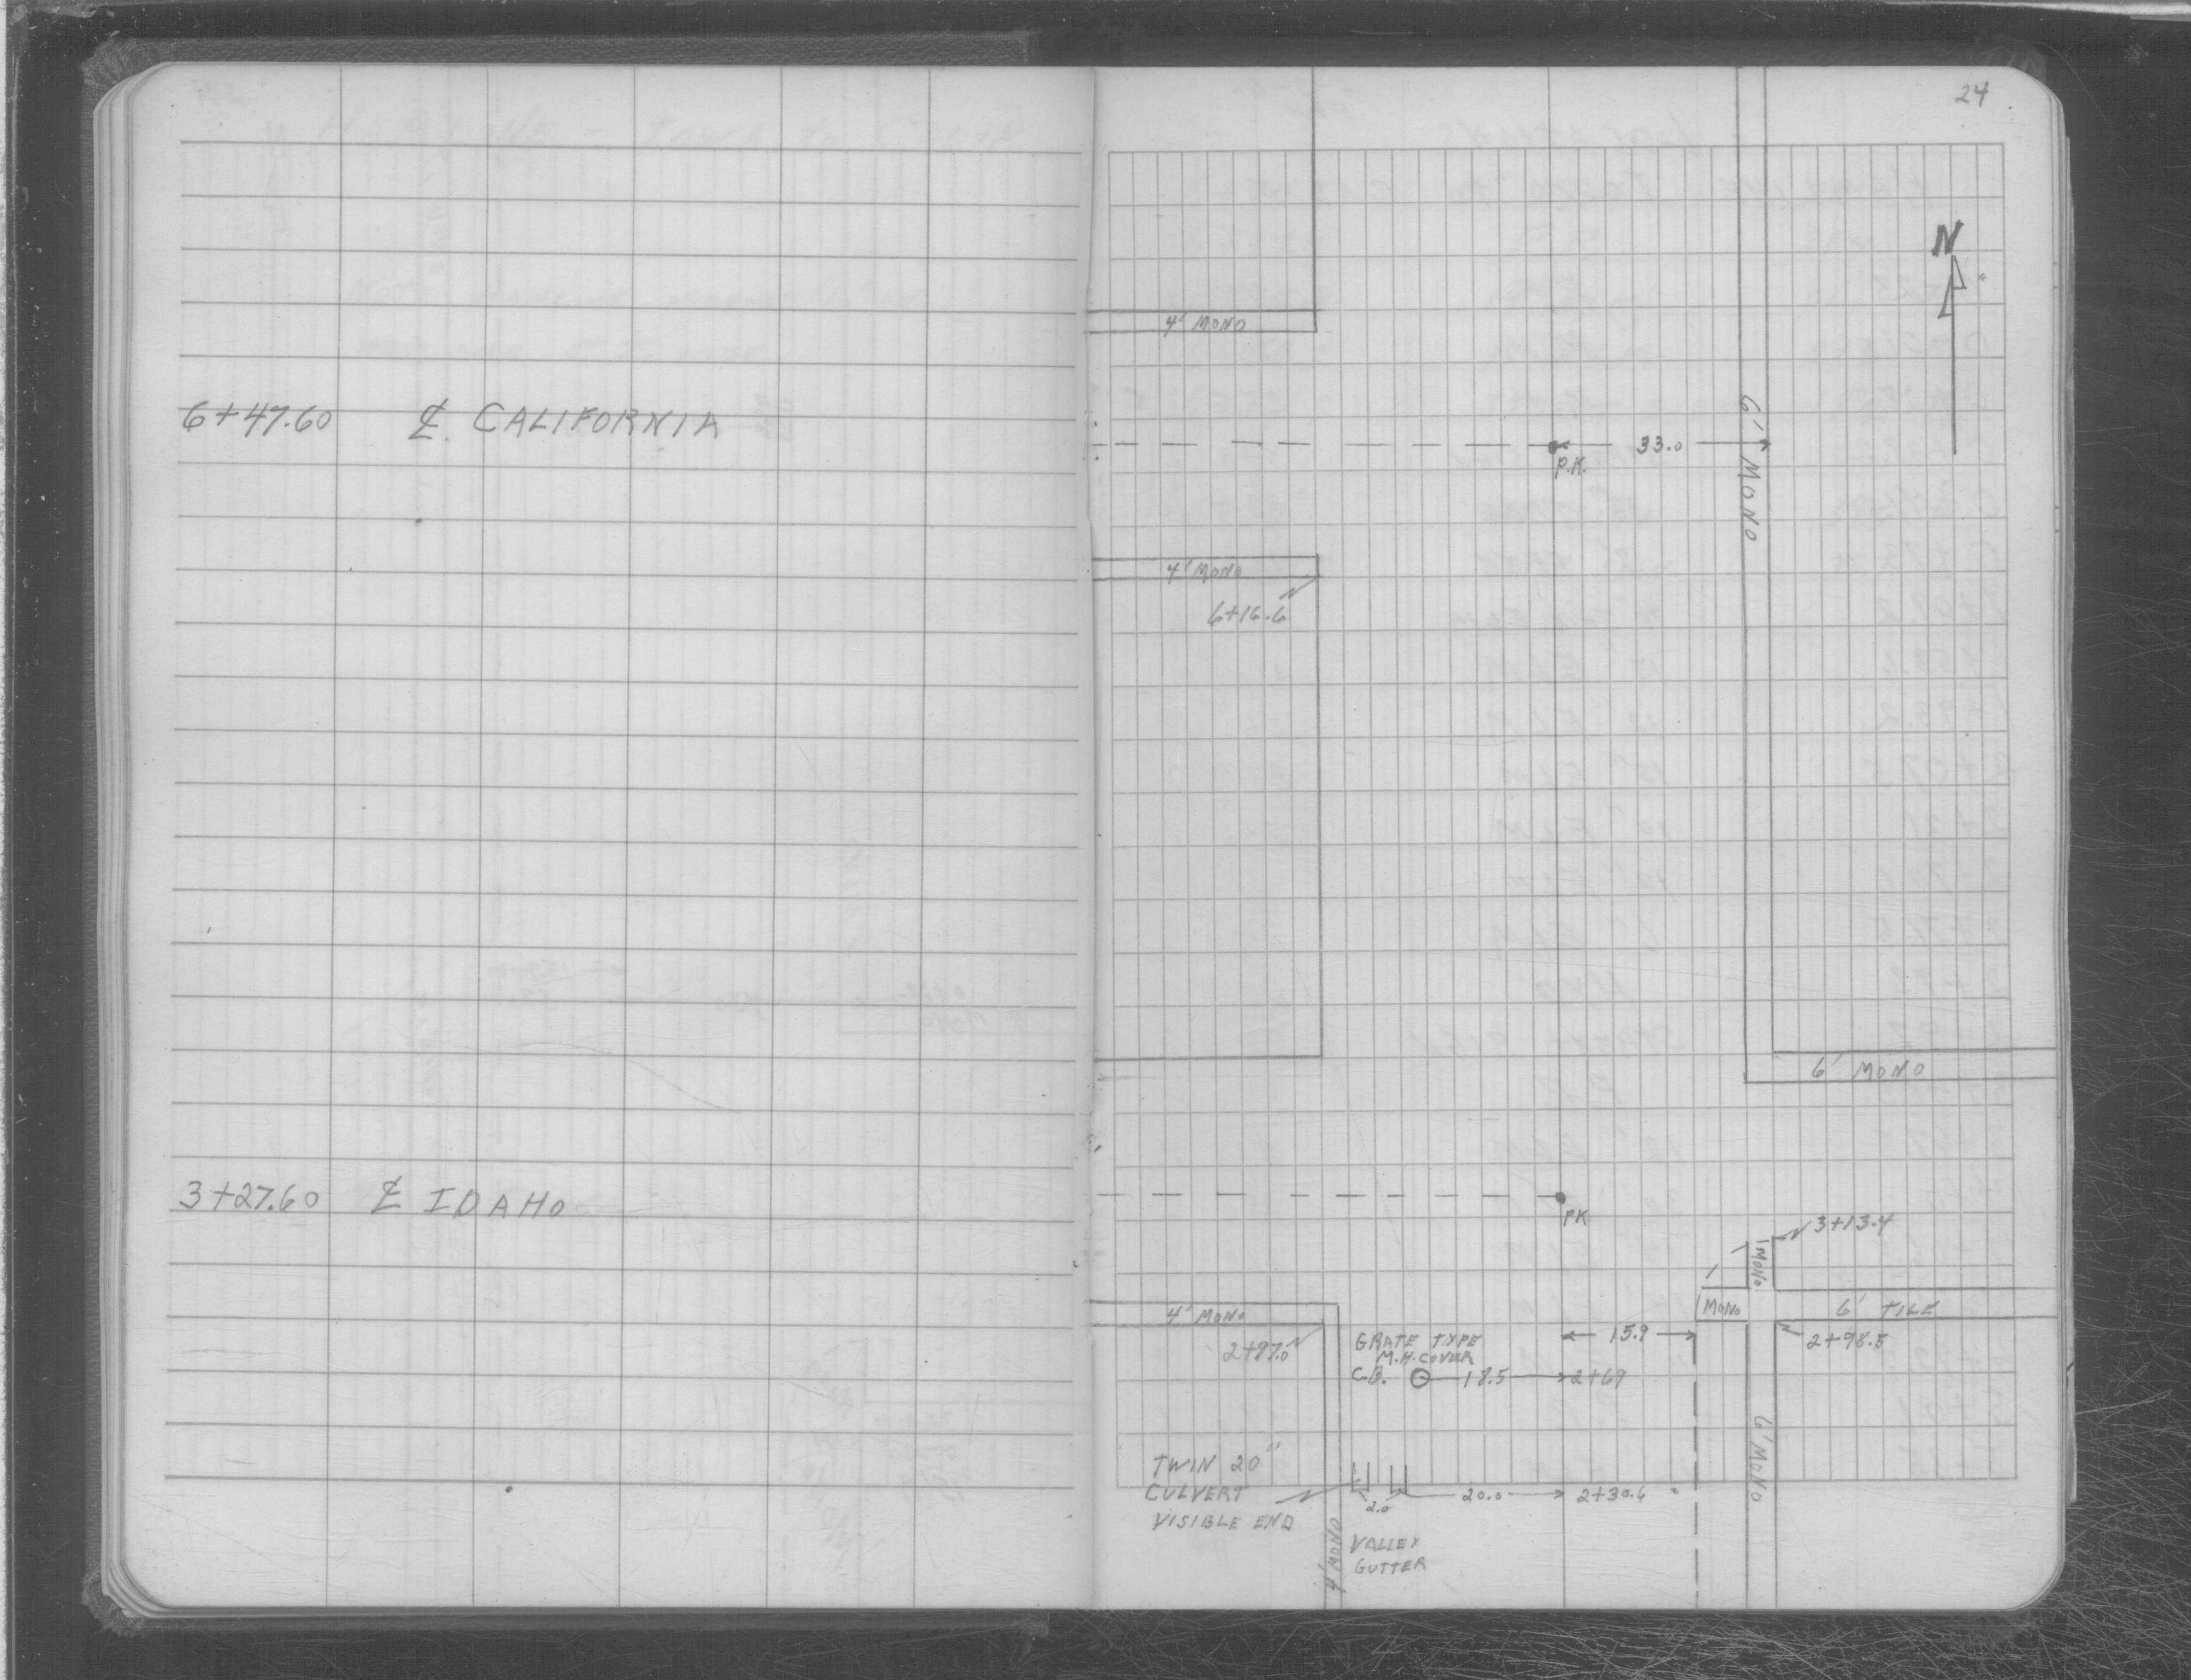 24
N
4' MONO
6+47.60 ⅊ CALIFORNIA
P.K.
33.0
6' MONO
4' MONO
6+16.6
6' MONO
3+27.60 ⅊ IDAHO
PK
3+13.4
MONO
MONO
6' TILE
4' MONO
2+97.0
GRATE TYPE
M.H. COVER
15.9
2+98.8
C.B. 18.5 2+69
6' MONO
TWIN 20"
CULVERT
VISIBLE END
2.0
20.0 2+30.6
4' MONO
VALLEY
GUTTER